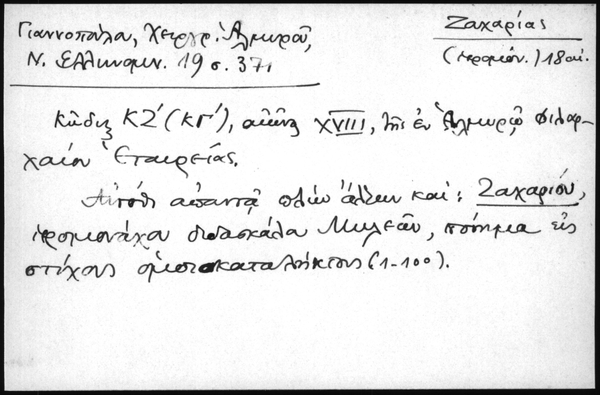 Γιαννοπούλου, Χειργρ. Ἁλμυροῦ,
Ν. Ἑλληνομν. 19 σ. 371
Ζαχαρίας
(ἱερομόν.) 18 αἰ.
Κῶδιξ ΚΖ′ (ΚΓ′), αἰῶνος XVIII, τῆς ἐν Ἁλμυρῷ Φιλαρ-
χαίου Ἑταιρείας.
Αὐτόθι ἀπαντᾷ πλὴν ἄλλων καὶ: Ζαχαρίου,
ἱερομονάχου διδασκάλου Μηλεῶν, ποίημα εἰς
στίχους ὁμοιοκαταλήκτους (1-100).